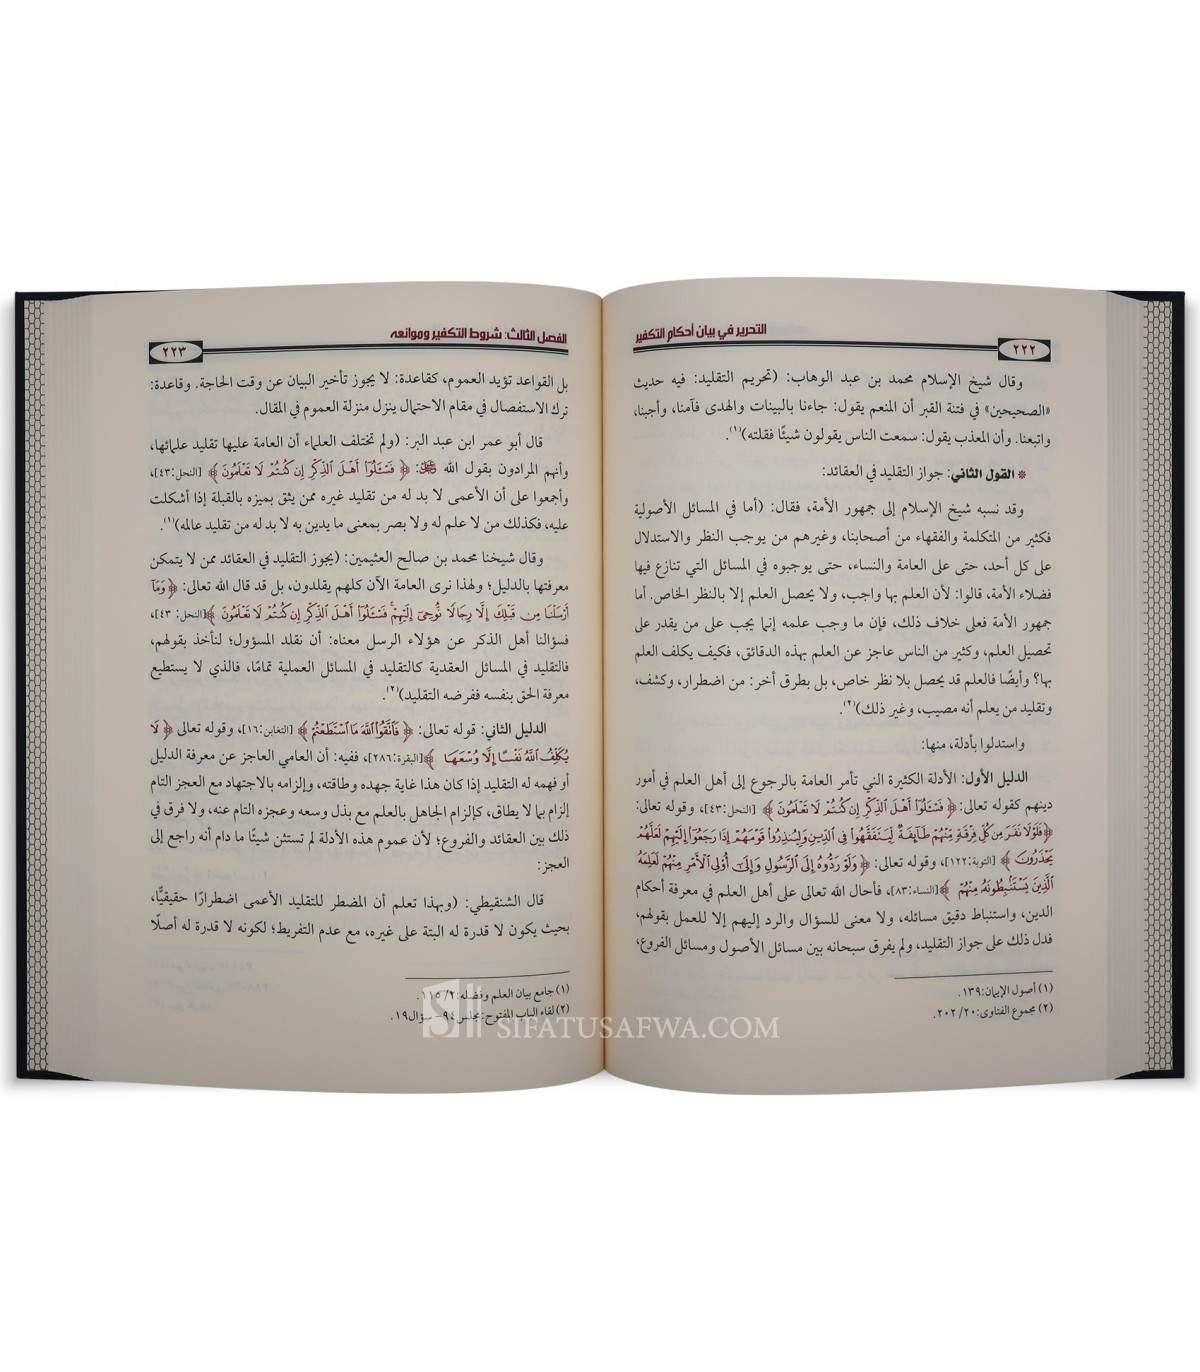 التحرير في بيان أحكام التكفير
٢٢٢
وقال شيخ الإسلام محمد بن عبد الوهاب: (تحريم التقليد: فيه حديث
«الصحيحين» في فتنة القبر أن المنعم يقول: جاءنا بالبينات والهدى فآمنا، وأجبنا،
واتبعنا. وأن المعذب يقول: سمعت الناس يقولون شيئًا فقلته)(١).
* القول الثاني: جواز التقليد في العقائد:
وقد نسبه شيخ الإسلام إلى جمهور الأمة، فقال: (أما في المسائل الأصولية
فكثير من المتكلمة والفقهاء من أصحابنا، وغيرهم من يوجب النظر والاستدلال
على كل أحد، حتى على العامة والنساء، حتى يوجبوه في المسائل التي تنازع فيها
فضلاء الأمة، قالوا: لأن العلم بها واجب، ولا يحصل العلم إلا بالنظر الخاص. أما
جمهور الأمة فعلى خلاف ذلك، فإن ما وجب علمه إنما يجب على من يقدر على
تحصيل العلم، وكثير من الناس عاجز عن العلم بهذه الدقائق، فكيف يكلف العلم
بها؟ وأيضًا فالعلم قد يحصل بلا نظر خاص، بل بطرق أخر: من اضطرار، وكشف،
وتقليد من يعلم أنه مصيب، وغير ذلك)(٢).
واستدلوا بأدلة، منها:
الدليل الأول: الأدلة الكثيرة التي تأمر العامة بالرجوع إلى أهل العلم في أمور
دينهم كقوله تعالى: ﴿ فَسْـَٔلُوٓا۟ أَهْلَ ٱلذِّكْرِ إِن كُنتُمْ لَا تَعْلَمُونَ ﴾ [النحل:٤٣]، وقوله تعالى:
﴿ فَلَوْلَا نَفَرَ مِن كُلِّ فِرْقَةٍ مِّنْهُمْ طَآئِفَةٌ لِّيَتَفَقَّهُوا۟ فِى ٱلدِّينِ وَلِيُنذِرُوا۟ قَوْمَهُمْ إِذَا رَجَعُوٓا۟ إِلَيْهِمْ لَعَلَّهُمْ
يَحْذَرُونَ ﴾ [التوبة:١٢٢]، وقوله تعالى: ﴿ وَلَوْ رَدُّوهُ إِلَى ٱلرَّسُولِ وَإِلَىٰٓ أُو۟لِى ٱلْأَمْرِ مِنْهُمْ لَعَلِمَهُ
ٱلَّذِينَ يَسْتَنۢبِطُونَهُۥ مِنْهُمْ ﴾ [النساء:٨٣]، فأحال الله تعالى على أهل العلم في معرفة أحكام
الدين، واستنباط دقيق مسائله، ولا معنى للسؤال والرد إليهم إلا للعمل بقولهم،
فدل ذلك على جواز التقليد، ولم يفرق سبحانه بين مسائل الأصول ومسائل الفروع،
(١) أصول الإيمان:١٣٩.
(٢) مجموع الفتاوى:٢٠/ ٢٠٢.
الفصل الثالث: شروط التكفير وموانعه
٢٢٣
بل القواعد تؤيد العموم، كقاعدة: لا يجوز تأخير البيان عن وقت الحاجة. وقاعدة:
ترك الاستفصال في مقام الاحتمال ينزل منزلة العموم في المقال.
قال أبو عمر ابن عبد البر: (ولم تختلف العلماء أن العامة عليها تقليد علمائها،
وأنهم المرادون بقول الله ﷻ: ﴿ فَسْـَٔلُوٓا۟ أَهْلَ ٱلذِّكْرِ إِن كُنتُمْ لَا تَعْلَمُونَ ﴾ [النحل:٤٣]،
وأجمعوا على أن الأعمى لا بد له من تقليد غيره ممن يثق بميزه بالقبلة إذا أشكلت
عليه، فكذلك من لا علم له ولا بصر بمعنى ما يدين به لا بد له من تقليد عالمه)(١).
وقال شيخنا محمد بن صالح العثيمين: (يجوز التقليد في العقائد ممن لا يتمكن
معرفتها بالدليل؛ ولهذا نرى العامة الآن كلهم يقلدون، بل قد قال الله تعالى: ﴿ وَمَآ
أَرْسَلْنَا مِن قَبْلِكَ إِلَّا رِجَالًا نُّوحِىٓ إِلَيْهِمْ ۚ فَسْـَٔلُوٓا۟ أَهْلَ ٱلذِّكْرِ إِن كُنتُمْ لَا تَعْلَمُونَ ﴾ [النحل: ٤٣]،
فسؤالنا أهل الذكر عن هؤلاء الرسل معناه: أن نقلد المسؤول؛ لنأخذ بقولهم،
فالتقليد في المسائل العقدية كالتقليد في المسائل العملية تمامًا، فالذي لا يستطيع
معرفة الحق بنفسه ففرضه التقليد)(٢).
الدليل الثاني: قوله تعالى: ﴿ فَٱتَّقُوا۟ ٱللَّهَ مَا ٱسْتَطَعْتُمْ ﴾ [التغابن:١٦]، وقوله تعالى ﴿ لَا
يُكَلِّفُ ٱللَّهُ نَفْسًا إِلَّا وُسْعَهَا ﴾ [البقرة:٢٨٦]، ففيه: أن العامي العاجز عن معرفة الدليل
أو فهمه له التقليد إذا كان هذا غاية جهده وطاقته، وإلزامه بالاجتهاد مع العجز التام
إلزام بما لا يطاق، كإلزام الجاهل بالعلم مع بذل وسعه وعجزه التام عنه، ولا فرق في
ذلك بين العقائد والفروع؛ لأن عموم هذه الأدلة لم تستثن شيئًا ما دام أنه راجع إلى
العجز:
قال الشنقيطي: (وبهذا تعلم أن المضطر للتقليد الأعمى اضطرارًا حقيقيًّا،
بحيث يكون لا قدرة له البتة على غيره، مع عدم التفريط؛ لكونه لا قدرة له أصلًا
(١) جامع بيان العلم وفضله:٢/ ١١٥.
(٢) لقاء الباب المفتوح:مجلس٩٤- سؤال١٩.
SIFATUSAFWA.COM